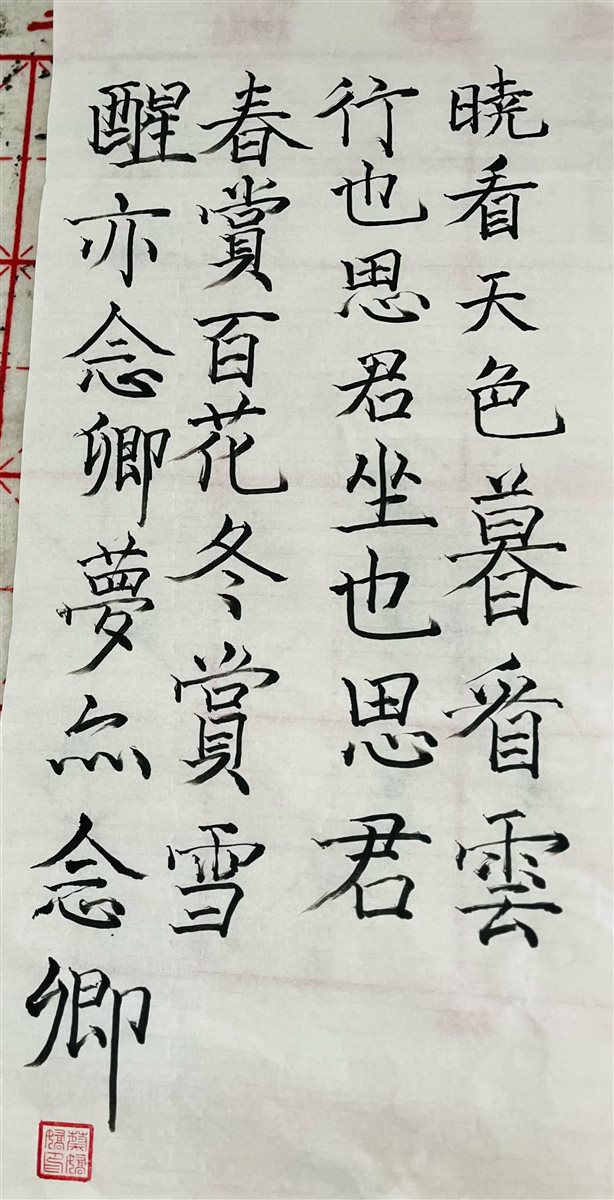 曉看天色暮看雲
行也思君坐也思君
春賞百花冬賞雪
醒亦念卿夢亦念卿